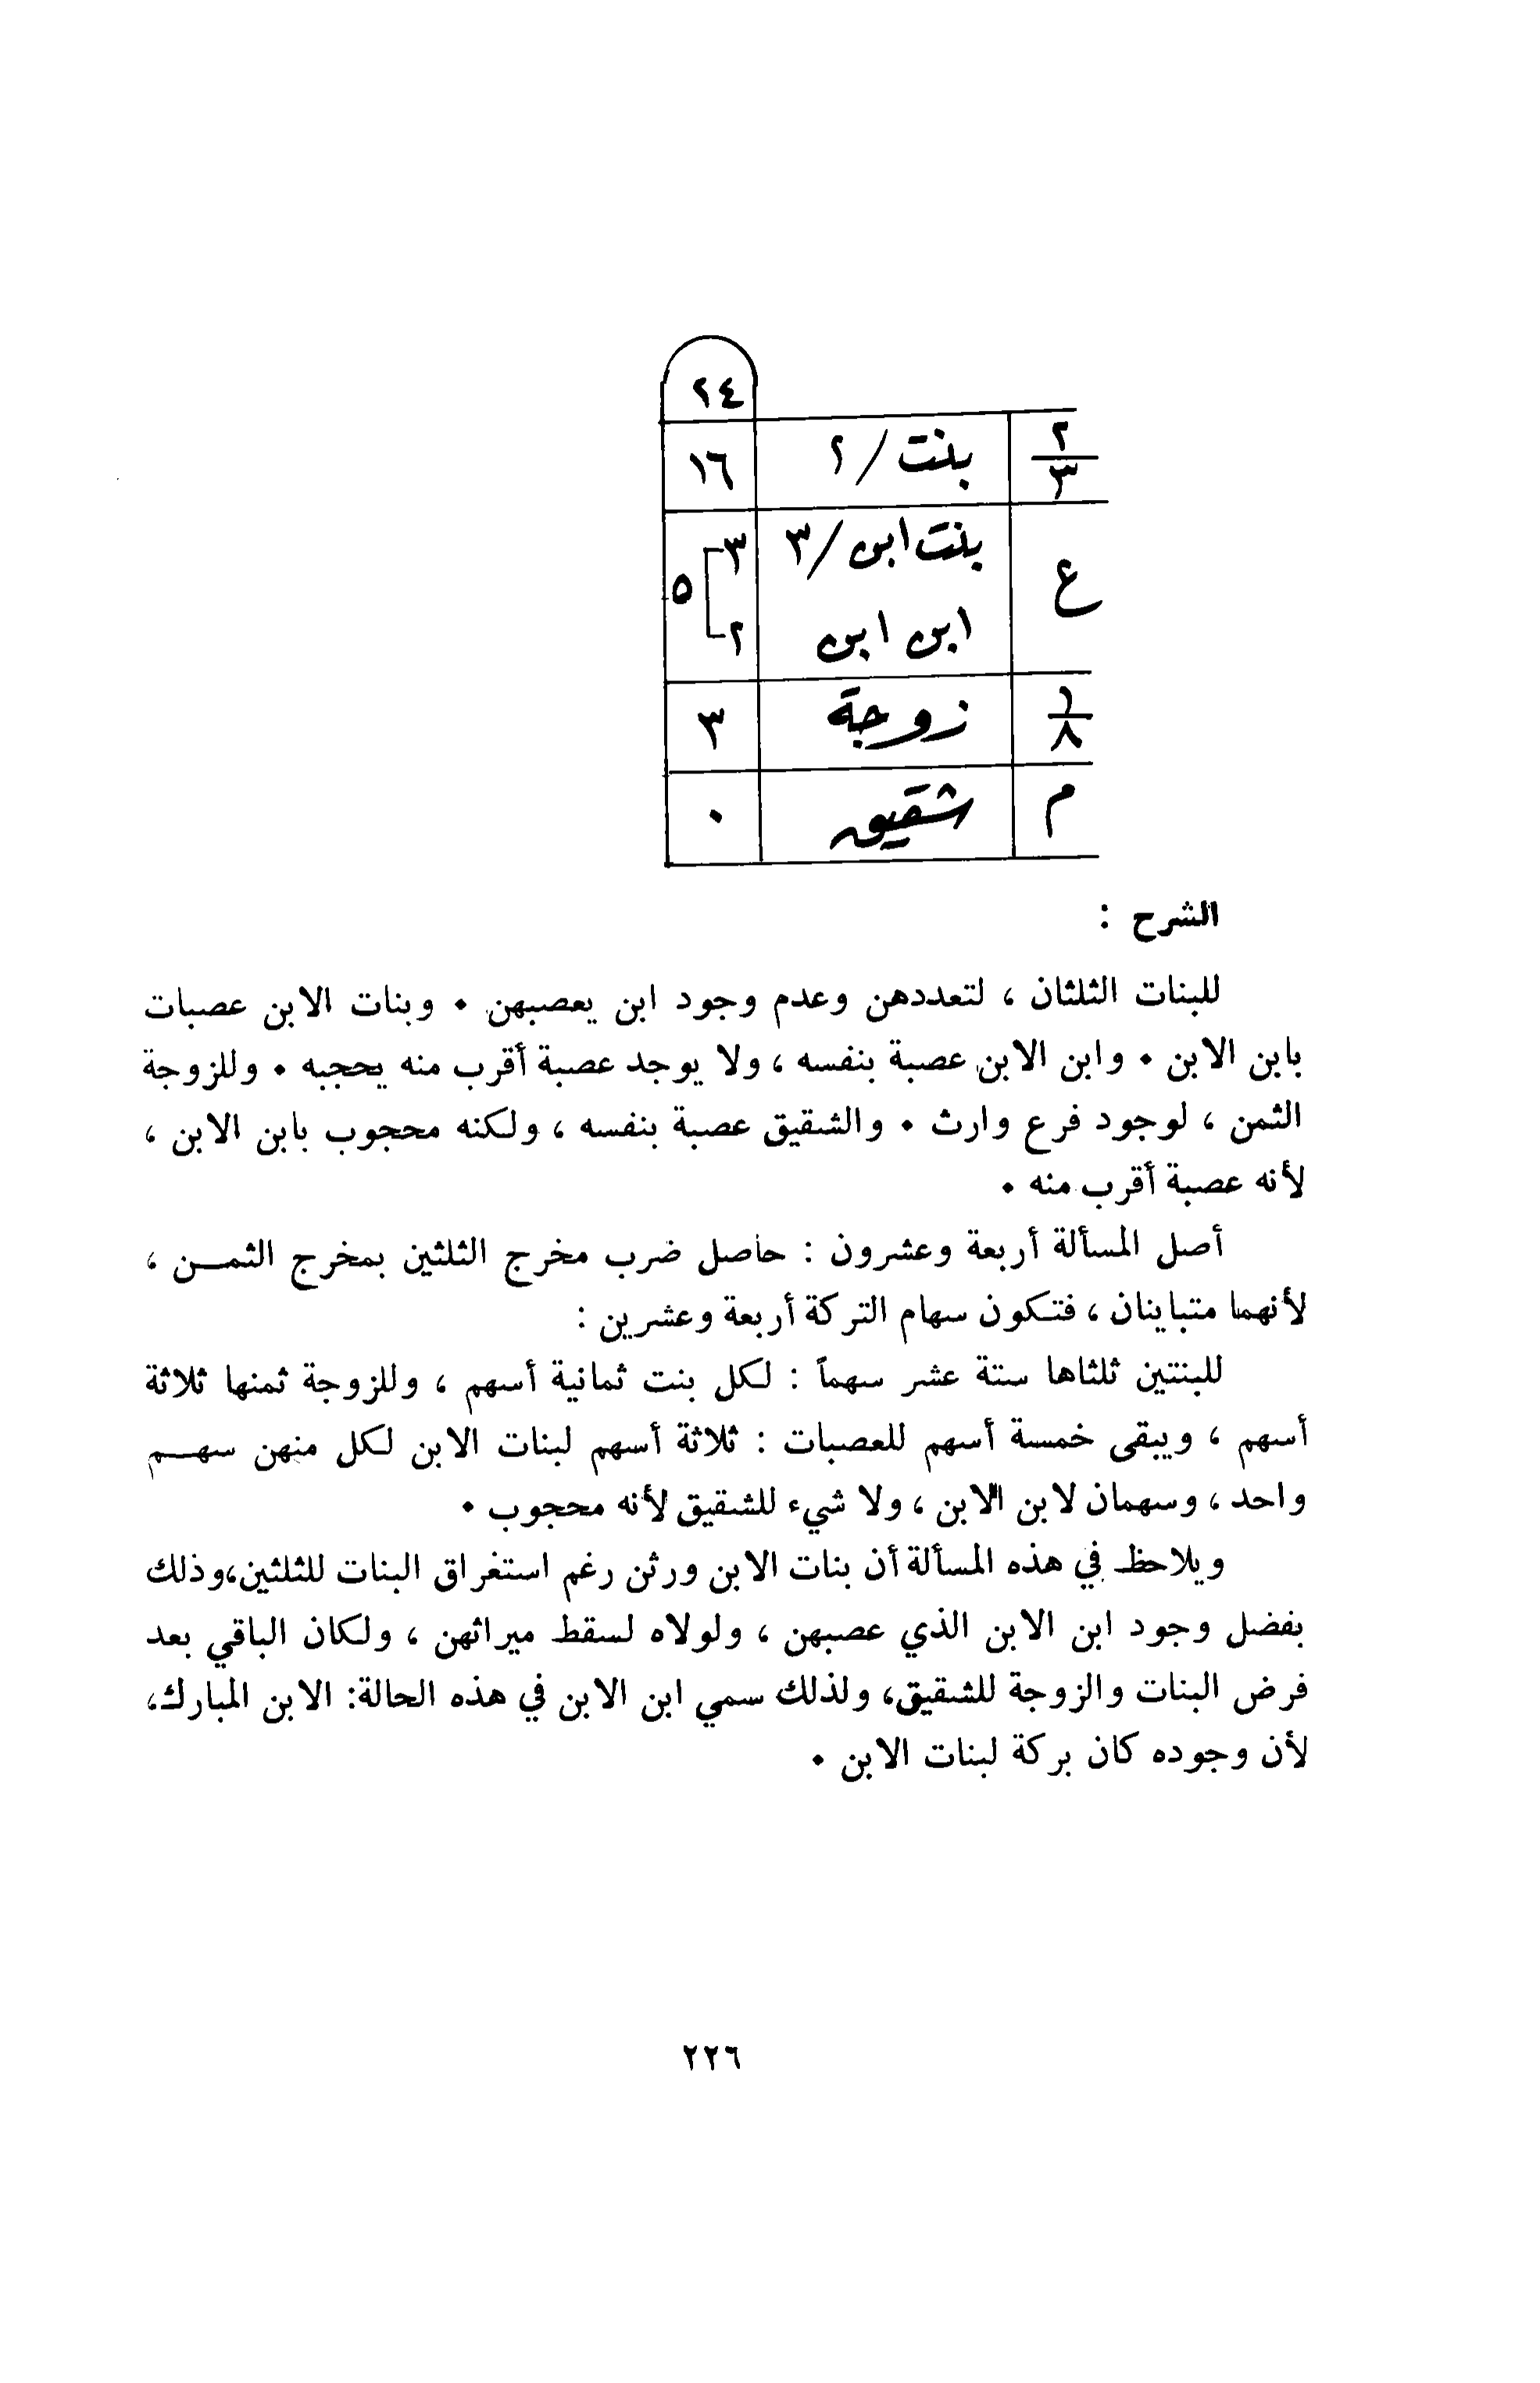 ٢٤
٢/٣ بنت / ٢ ١٦
ع بنت ابن / ٣ ٣
٥
ابن ابن ٢
١/٨ زوجة ٣
م شقيق ٠
الشرح :
للبنات الثلثان ، لتعددهن وعدم وجود ابن يعصبهن ٠ وبنات الابن عصبات
بابن الابن ٠ وابن الابن عصبة بنفسه ، ولا يوجد عصبة أقرب منه يحجبه ٠ وللزوجة
الثمن ، لوجود فرع وارث ٠ والشقيق عصبة بنفسه ، ولكنه محجوب بابن الابن ،
لأنه عصبة أقرب منه ٠
أصل المسألة أربعة وعشرون : حاصل ضرب مخرج الثلثين بمخرج الثمـــن ،
لأنهما متباينان ، فتكون سهام التركة أربعة وعشرين :
للبنتين ثلثاها ستة عشر سهماً : لكل بنت ثمانية أسهم ، وللزوجة ثمنها ثلاثة
أسهم ، ويبقى خمسة أسهم للعصبات : ثلاثة أسهم لبنات الابن لكل منهن سهـــم
واحد ، وسهمان لابن الابن ، ولا شيء للشقيق لأنه محجوب ٠
ويلاحظ في هذه المسألة أن بنات الابن ورثن رغم استغراق البنات للثلثين،وذلك
بفضل وجود ابن الابن الذي عصبهن ، ولولاه لسقط ميراثهن ، ولكان الباقي بعد
فرض البنات والزوجة للشقيق، ولذلك سمي ابن الابن في هذه الحالة: الابن المبارك،
لأن وجوده كان بركة لبنات الابن ٠
٢٢٦